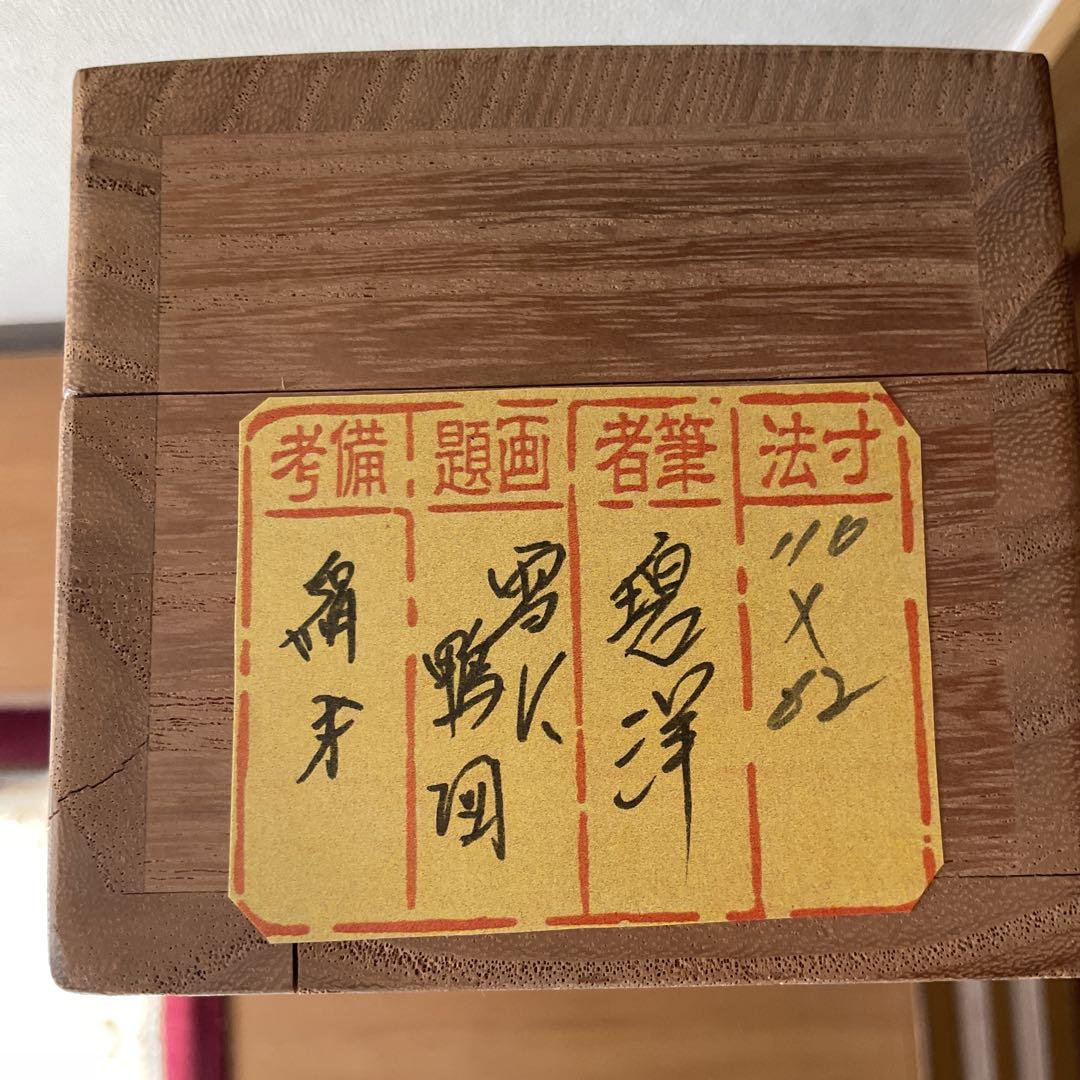 寸法
110
×
82
筆者
碧洋
画題
雪に
鴨図
備考
絹本